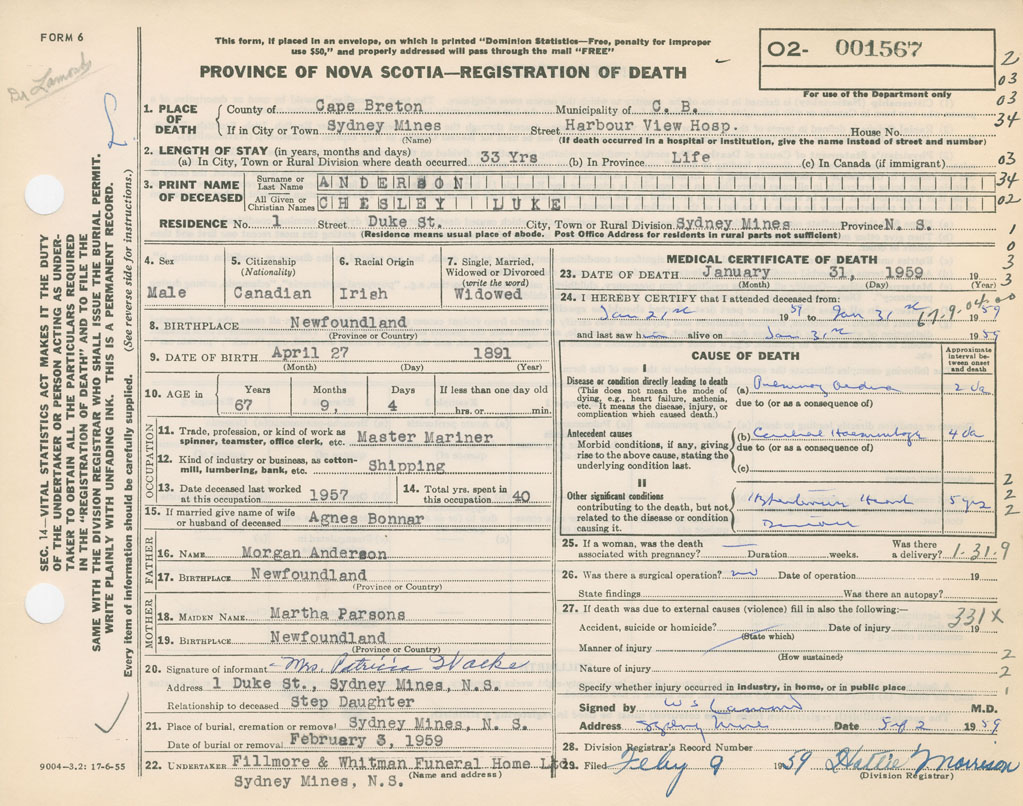 FORM 6
This form, if placed in an envelope, on which is printed "Dominion Statistics—Free, penalty for improper
use $50," and properly addressed will pass through the mail "FREE"
PROVINCE OF NOVA SCOTIA—REGISTRATION OF DEATH
O2- 001567
For use of the Department only
Dr Lamond
2
03
03
34
03
34
02
1
0
3
3
1. PLACE OF DEATH
County of Cape Breton Municipality of C. B.
If in City or Town Sydney Mines Street Harbour View Hosp. House No.
(Name) (If death occurred in a hospital or institution, give the name instead of street and number)
2. LENGTH OF STAY (in years, months and days)
(a) In City, Town or Rural Division where death occurred 33 Yrs (b) In Province Life (c) In Canada (if immigrant)
3. PRINT NAME OF DECEASED
Surname or Last Name ANDERSON
All Given or Christian Names CHESLEY LUKE
RESIDENCE No. 1 Street Duke St. City, Town or Rural Division Sydney Mines Province N. S.
(Residence means usual place of abode. Post Office Address for residents in rural parts not sufficient)
4. Sex
Male
5. Citizenship
(Nationality)
Canadian
6. Racial Origin
Irish
7. Single, Married,
Widowed or Divorced
(write the word)
Widowed
8. BIRTHPLACE Newfoundland
(Province or Country)
9. DATE OF BIRTH April 27 1891
(Month) (Day) (Year)
10. AGE in
Years Months Days If less than one day old
67 9, 4 hrs. or min.
OCCUPATION
11. Trade, profession, or kind of work as
spinner, teamster, office clerk, etc. Master Mariner
12. Kind of industry or business, as cotton-
mill, lumbering, bank, etc. Shipping
13. Date deceased last worked
at this occupation 1957
14. Total yrs. spent in
this occupation 40
15. If married give name of wife
or husband of deceased Agnes Bonnar
FATHER
16. NAME Morgan Anderson
17. BIRTHPLACE Newfoundland
(Province or Country)
MOTHER
18. MAIDEN NAME Martha Parsons
19. BIRTHPLACE Newfoundland
(Province or Country)
20. Signature of informant Mrs. Patricia
Address 1 Duke St., Sydney Mines, N.S.
Relationship to deceased Step Daughter
21. Place of burial, cremation or removal Sydney Mines, N. S.
Date of burial or removal February 3, 1959
22. UNDERTAKER Fillmore & Whitman Funeral Home Ltd.
(Name and address)
Sydney Mines, N.S.
MEDICAL CERTIFICATE OF DEATH
23. DATE OF DEATH January 31, 1959 19
(Month) (Day) (Year)
24. I HEREBY CERTIFY that I attended deceased from:
Jan 21st 1959 to Jan 31st 1959
67.9.04.00
and last saw him alive on Jan 31st 1959
CAUSE OF DEATH
Approximate
interval be-
tween onset
and death
I
Disease or condition directly leading to death
(This does not mean the mode of
dying, e.g., heart failure, asthenia,
etc. It means the disease, injury, or
complication which caused death.)
(a) 2 da
due to (or as a consequence of)
Antecedent causes
Morbid conditions, if any, giving
rise to the above cause, stating the
underlying condition last.
(b) Cerebral Haemorrhage 4 da
due to (or as a consequence of)
(c)
II
Other significant conditions
contributing to the death, but not
related to the disease or condition
causing it.
Heart
5 yrs
2
2
2
25. If a woman, was the death
associated with pregnancy? Duration weeks.
Was there
a delivery?
1.31.9
26. Was there a surgical operation? no Date of operation 19
State findings Was there an autopsy?
27. If death was due to external causes (violence) fill in also the following:—
331X
Accident, suicide or homicide? Date of injury 19
(State which)
Manner of injury
(How sustained)
2
Nature of injury
2
Specify whether injury occurred in industry, in home, or in public place
1
Signed by W S Lamond M.D.
Address Sydney Mines Date Feb 2 1959
28. Division Registrar's Record Number
29. Filed Feby 9 1959 Hattie Morrison
(Division Registrar)
SEC. 14—VITAL STATISTICS ACT MAKES IT THE DUTY
OF THE UNDERTAKER OR PERSON ACTING AS UNDER-
TAKER TO OBTAIN ALL THE PARTICULARS REQUIRED
IN THE "REGISTRATION OF DEATH" AND TO FILE THE
SAME WITH THE DIVISION REGISTRAR WHO SHALL ISSUE THE BURIAL PERMIT.
WRITE PLAINLY WITH UNFADING INK. THIS IS A PERMANENT RECORD.
Every item of information should be carefully supplied. (See reverse side for instructions.)
9004—3.2: 17-6-55